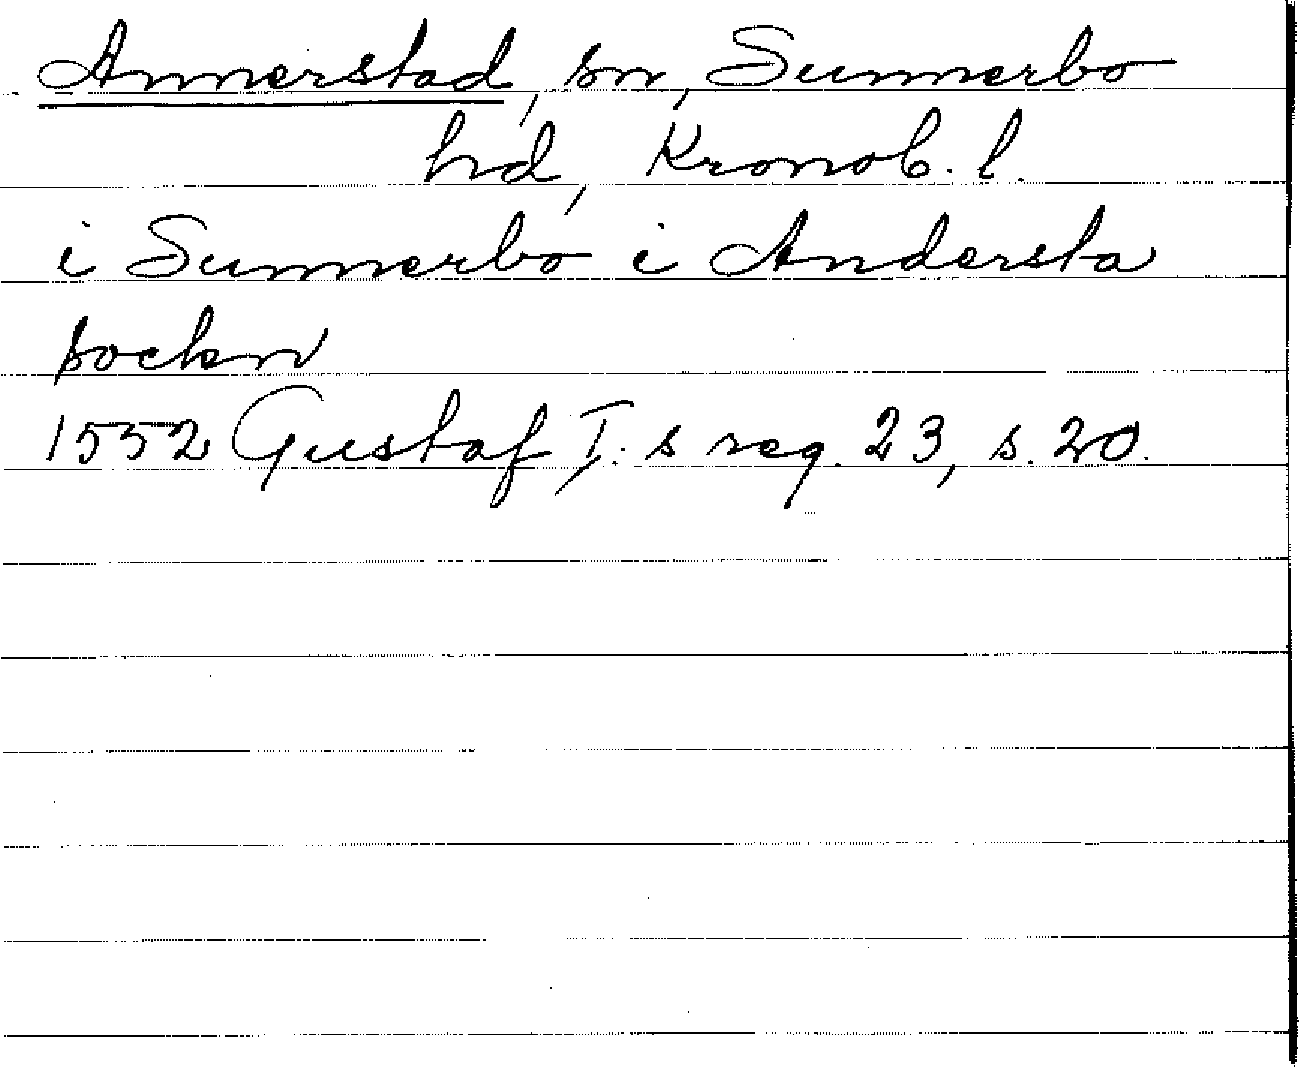 Annerstad, sn, Sunnerbo
hd, Kronob. l.
i Sunnerbo i Andersta
sockn
1552 Gustaf I:s reg. 23, s. 20.